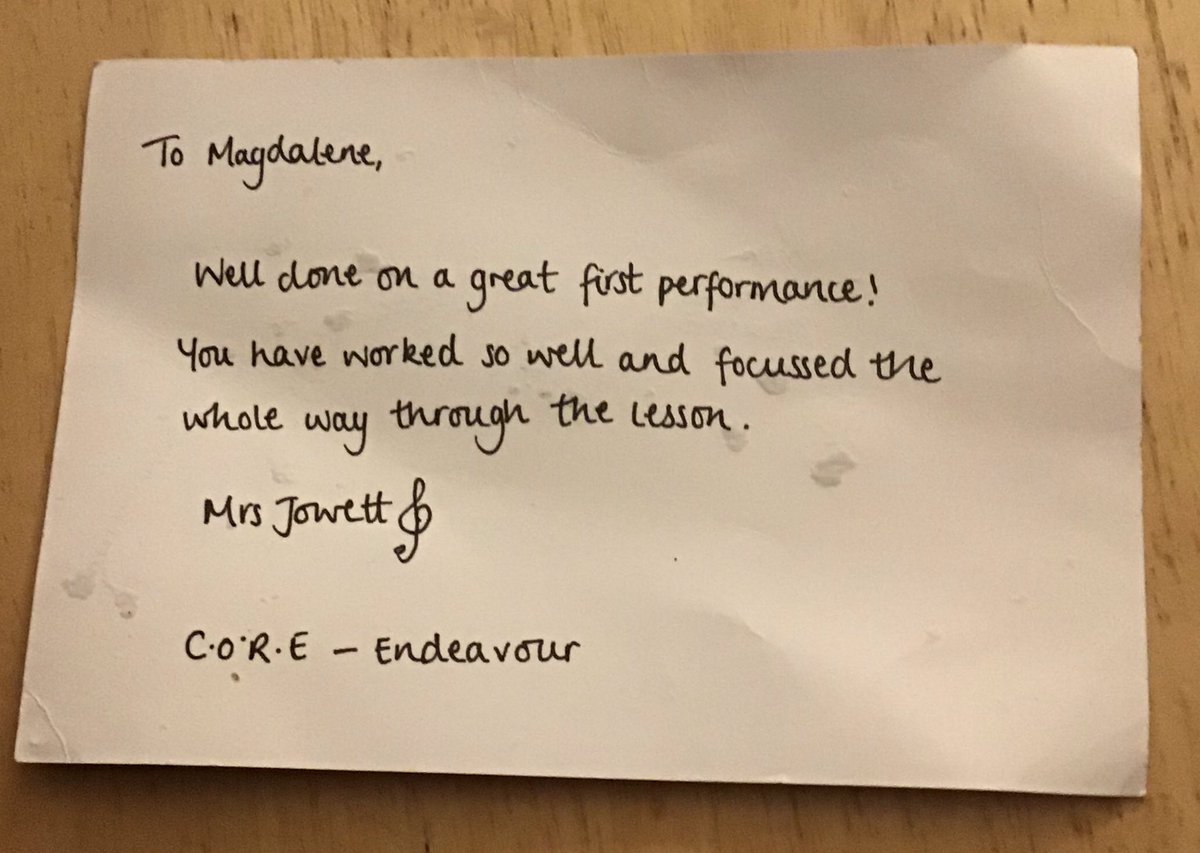 To Magdalene,
Well done on a great first performance!
You have worked so well and focussed the
whole way through the lesson.
Mrs Jowett
C.O.R.E - Endeavour